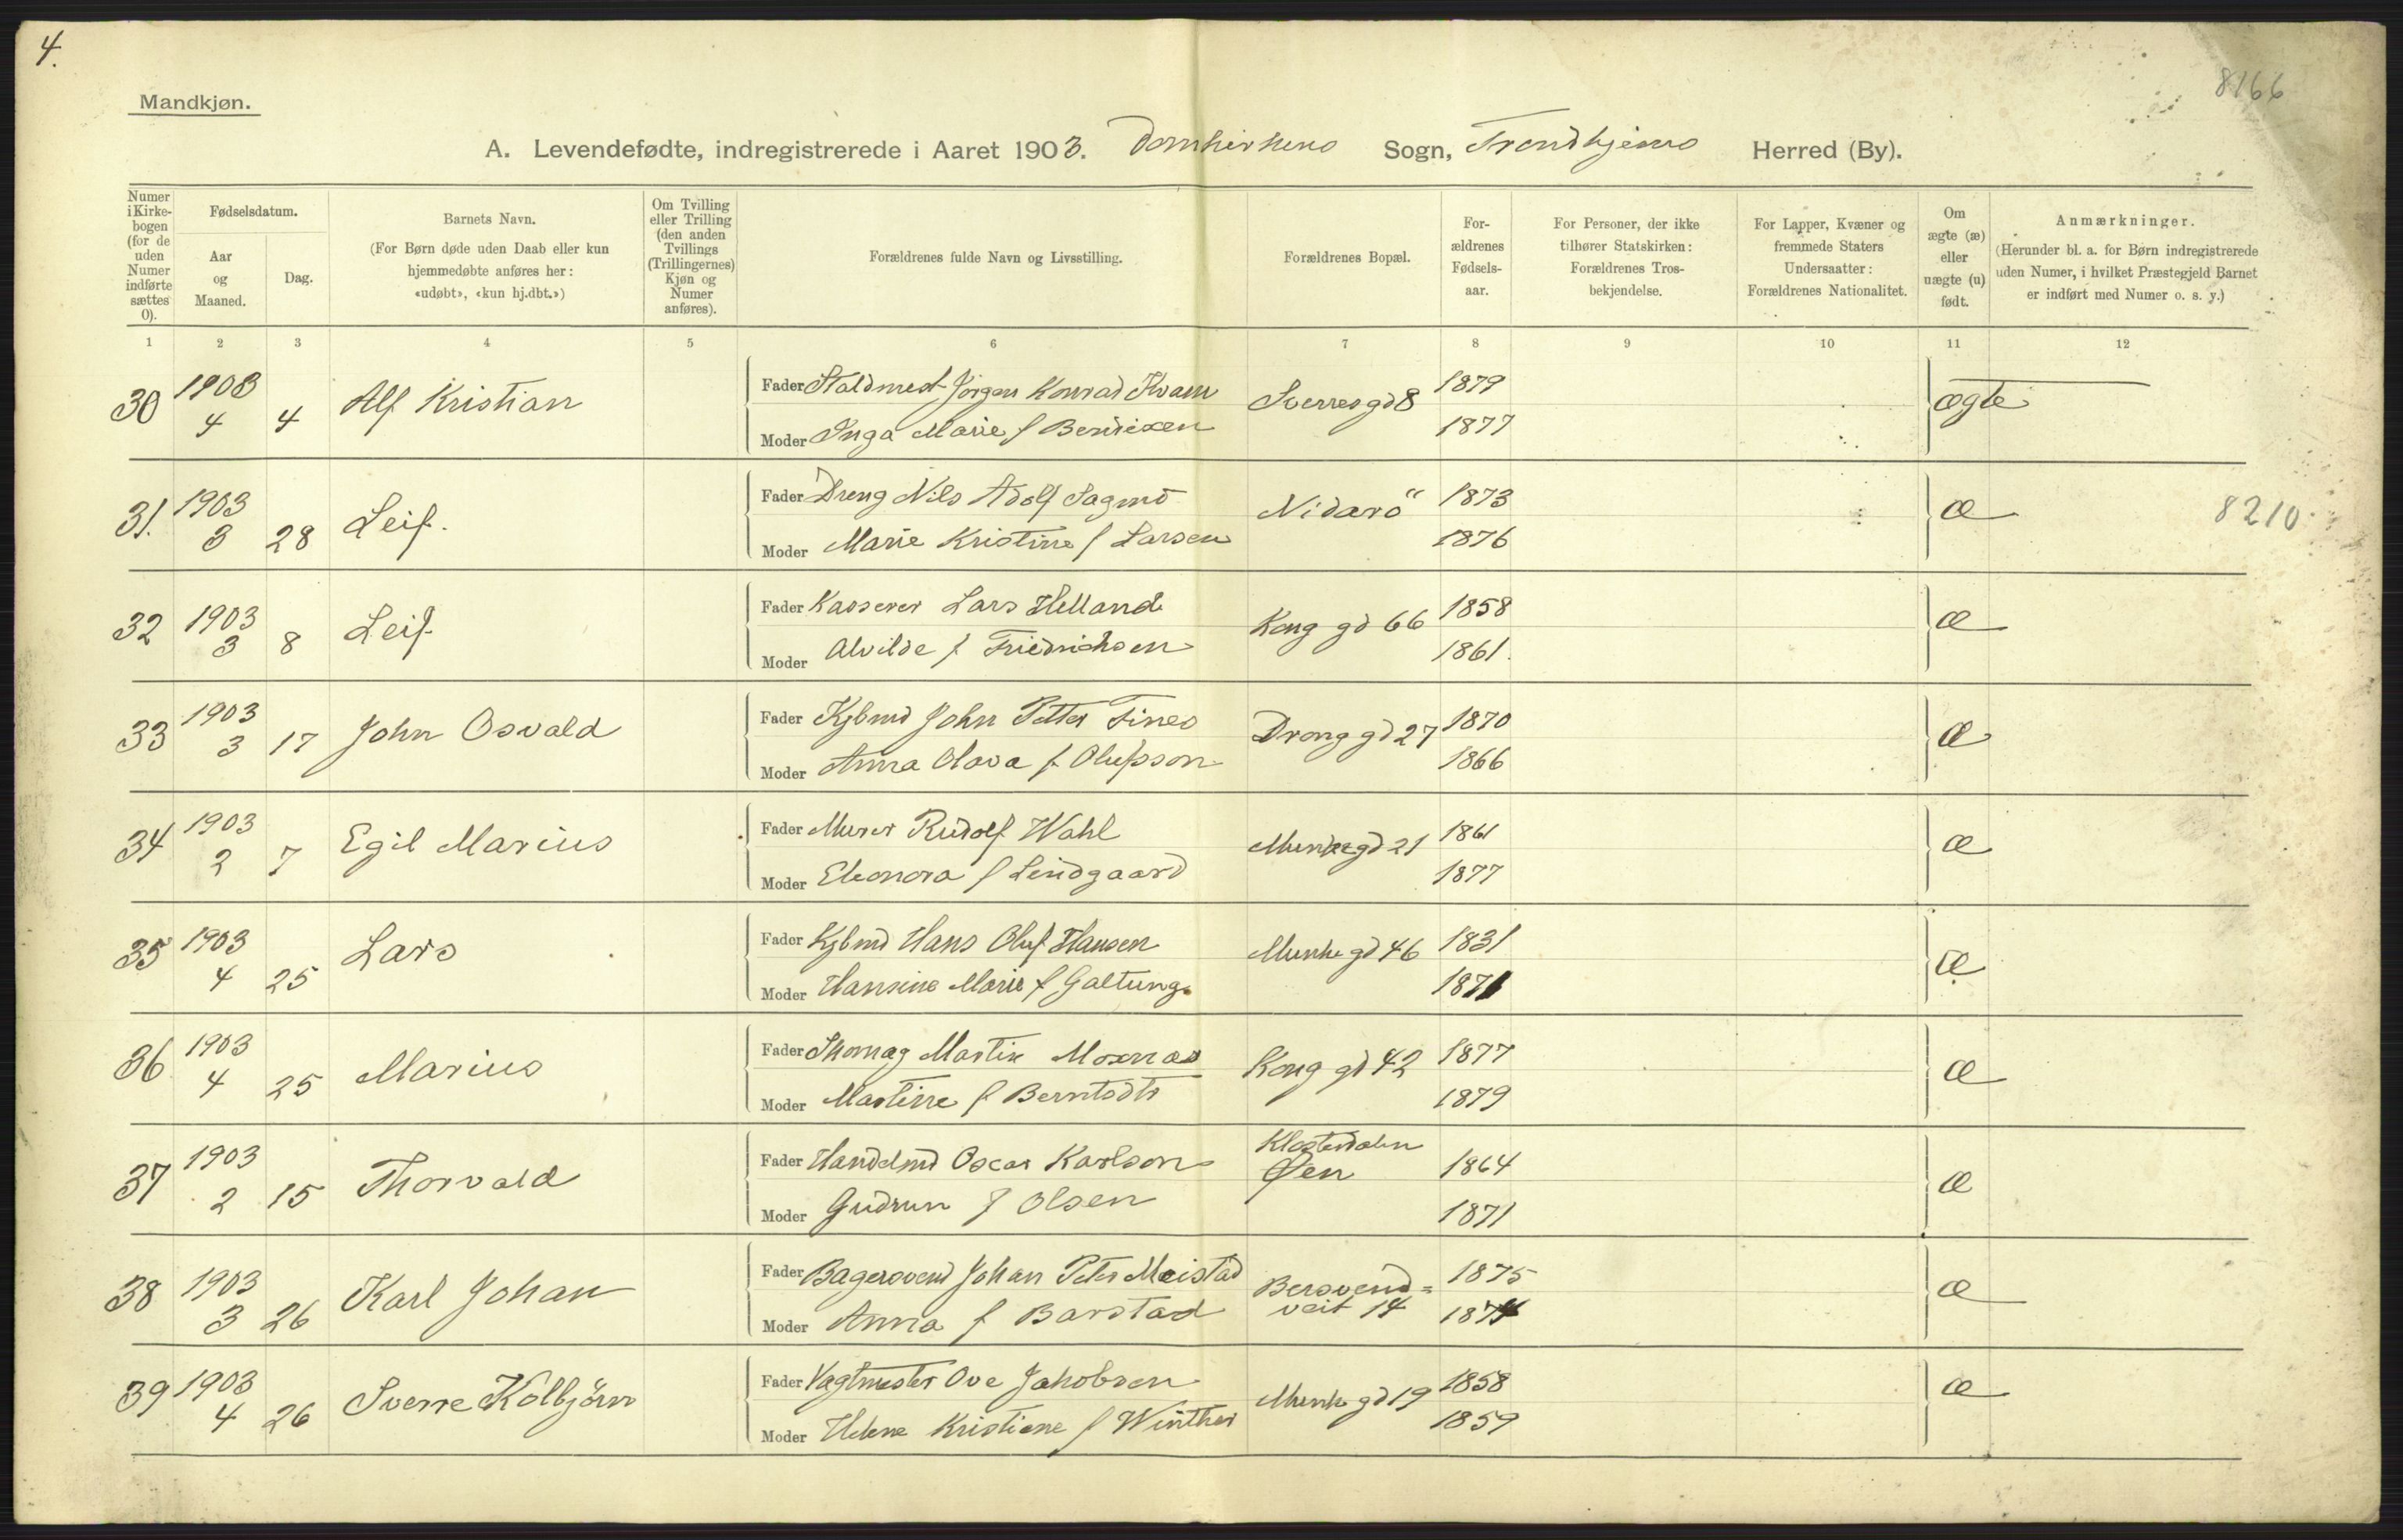 4.
8166
Mandkjøn.
A. Levendefødte, indregistrerede i Aaret 1903. Domkirkens Sogn, Trondhjems Herred (By).
Numer i Kirke-bogen (for de uden Numer indførte sættes 0).
Fødselsdatum.
Aar og Maaned.
Dag.
Barnets Navn.
(For Børn døde uden Daab eller kun hjemmedøbte anføres her: «udøbt», «kun hj.dbt.»)
Om Tvilling eller Trilling (den anden Tvillings (Trillingernes) Kjøn og Numer anføres).
Forældrenes fulde Navn og Livsstilling.
Forældrenes Bopæl.
For-ældrenes Fødsels-aar.
For Personer, der ikke tilhører Statskirken: Forældrenes Tros-bekjendelse.
For Lapper, Kvæner og fremmede Staters Undersaatter: Forældrenes Nationalitet.
Om ægte (æ) eller uægte (u) født.
Anmærkninger.
(Herunder bl. a. for Børn indregistrerede uden Numer, i hvilket Præstegjeld Barnet er indført med Numer o. s. v.)
1 2 3 4 5 6 7 8 9 10 11 12
30 1903 4 4 Alf Kristian Fader Staldmest Jörgen Konrad Kvam Sverresgd 8 1879 ægte
Moder Inga Marie f Bendixen 1877
31. 1903 3 28 Leif. Fader Dreng Nils Adolf Sagmo Nidarö 1873 æ 8210
Moder Marie Kristine f Larsen 1876
32 1903 3 8 Leif Fader Kasserer Lars Helland Kong gd 66 1858 æ
Moder Alvilde f. Friedrichsen 1861.
33 1903 3 17 John Osvald Fader Kjbmd John Petter Fines Drong gd 27 1870 æ
Moder Anna Olava f. Olufsson 1866
34 1903 2 7 Egil Marius Fader Murer Rudolf Wahl Munkegd 21 1861 æ
Moder Eleonora f Lindgaard 1877
35 1903 4 25 Lars Fader Kjbmd Hans Oluf Hansen Munkegd 46 1831 æ
Moder Hansine Marie f Galtung. 1871
36 1903 4 25 Marius Fader Martin Moxnas Kong gd 42 1877 æ
Moder Martine f Berntsdtr 1879
37 1903 2 15 Thorvald Fader Handelmd Oscar Karlson Klosterdalen Øen 1864 æ
Moder Gudrun f Olsen 1871
38 1903 3 26 Karl Johan Fader Bagersvend Johan Peter Meistad Bersvend= veit 14 1875 æ
Moder Anna f Barstad 1874
39 1903 4 26 Sverre Kolbjörn Fader Vagtmester Ove Jakobsen Munkgd 19 1858 æ
Moder Helene Kristiane f Winther 1859